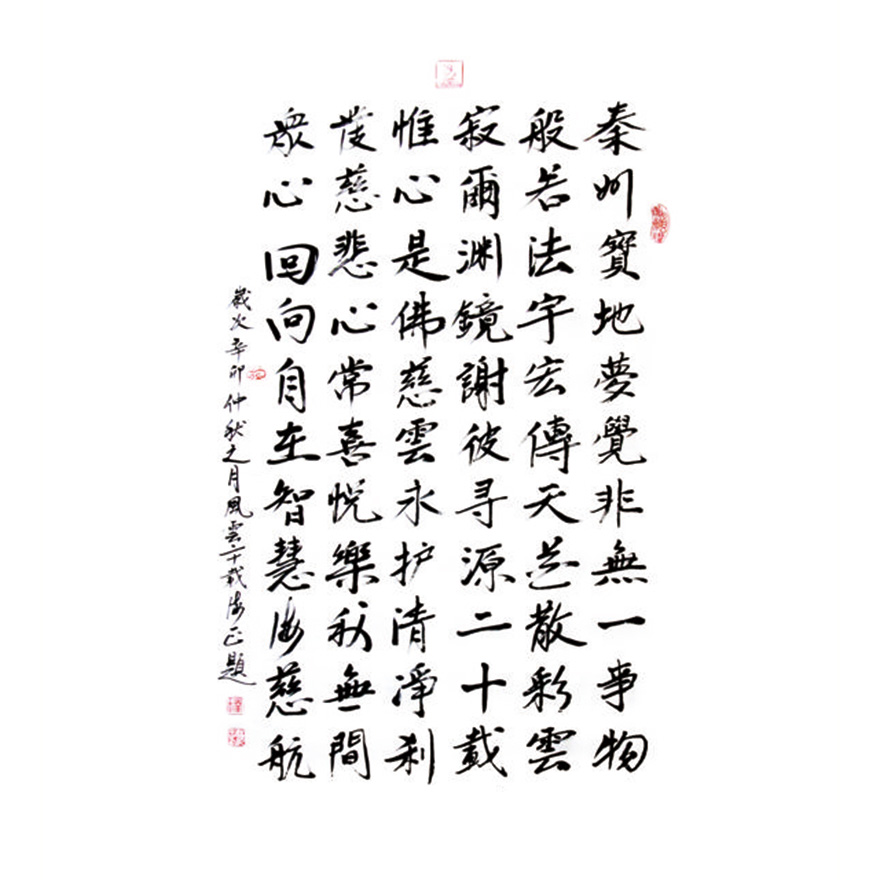 秦州寶地夢覺非無一事物
般若法宇宏傳天散彩雲
寂爾渊鏡謝彼寻源二十載
惟心是佛慈雲永护清淨刹
發慈悲心常喜悅樂無間
眾心回向自在智慧海慈航
歲次辛卯仲秋之月風雲二十載海正題